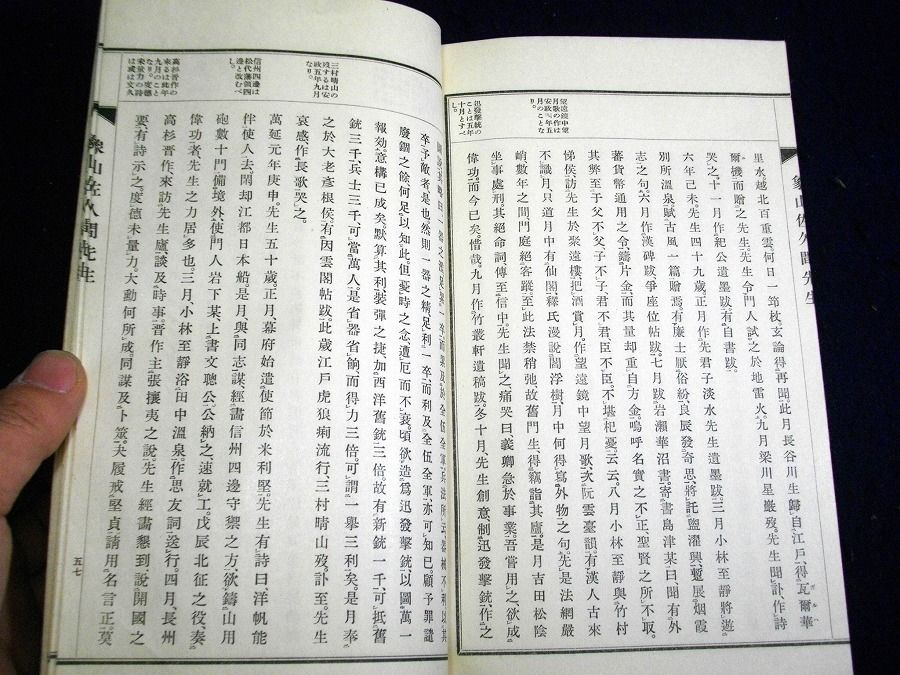 象山佐久間先生
望遠鏡中望
月歌の作は
安政四年五
月のことな
り。
迅發擊銃の
ことは五年
十月とすべ
し。
里水越北百重雲、何日一筇杖玄論得再聞、此月長谷川生歸自江戶、得瓦爾華
爾機而贈之先生、先生令門人試之於地雷火、九月梁川星巖歿、先生聞訃作詩
哭之、十一月作紀公遺墨跋、有自書跋、
六年己未、先生四十九歲、正月作先君子淡水先生遺墨跋、三月小林至靜將遊
別所溫泉、賦古風一篇贈焉、有廉士厭俗紛、良辰發奇思、將託盥濯興、蹔展烟霞
志之句、六月作漢碑跋爭座位帖跋、七月跋岩瀨華沼書、寄書島津某曰、聞有外
蕃貨幣通用之令、鑄片金而其量却重自方金、嗚呼名實之不正、聖賢之所不取、
其弊至于父不父、子不子、君不君、臣不臣、不堪杞憂云云、八月小林至靜與竹村
悌俟、訪先生於聚遠樓、把酒賞月、作望遠鏡中望月歌、次阮雲臺韻、有漢人古來
不識月、只道月中有仙闕、釋氏漫說閻浮樹、月中何得寫外物之句、先是法網嚴
峭、數年之間、門庭絕客蹤、至此法禁稍弛、故舊門生得竊詣其廬、是月吉田松陰
坐事處刑、其絕命詞傳至信中、先生聞之、痛哭曰、義卿急於事業、吾嘗用之欲成
偉功、而今已矣、惜哉、九月作竹叢軒遺稿跋、冬十月、先生創意制迅發擊銃、作之
三村晴山の
歿するは安
政五年九月
なり。
信州四邊は
松代藩領四
邊と改むべ
し。
高杉晉作の
來るは此年
九月のこと
なり。度德
未量力の詩
は或は文久
卒予敵者是也、然則一器之精足利一卒、而利及全伍全軍、亦可知已、顧予罪譴
廢錮之餘、何足以知此、但憂時之念、遭厄而不衰、頃欲造爲迅發擊銃、以圖萬一
報効、意構已成矣、默算其利、裝彈之捷、加西洋舊銃三倍、故有新銃一千、可抵舊
銃三千、兵士三千、可當萬人、是省器省餉、而得力三倍、可謂一擧三利矣、是月奉
之於大老彥根侯、有因雲閣帖跋、此歲江戶虎狼痢流行、三村晴山歿、訃至、先生
哀感、作長歌哭之、
萬延元年庚申、先生五十歲、正月、幕府始遣使節於米利堅、先生有詩曰、洋帆能
伴使人去、閑却江都日本船、是月與同志謀、經畫信州四邊守禦之方、欲鑄山用
砲數十門備境外、使門人岩下某上書文聰公、公納之、速就工、戊辰北征之役、奏
偉功者、先生之力居多也、三月、小林至靜浴田中溫泉、作思友詞送行、四月、長州
高杉晉作來訪先生廬、談及時事、晉作主張攘夷之說、先生經畫懇到說開國之
要、有詩示之、度德未量力、大勳何所成、同謀及卜筮、夬履戒堅貞、請用名言正、莫
象山佐久間先生
五七